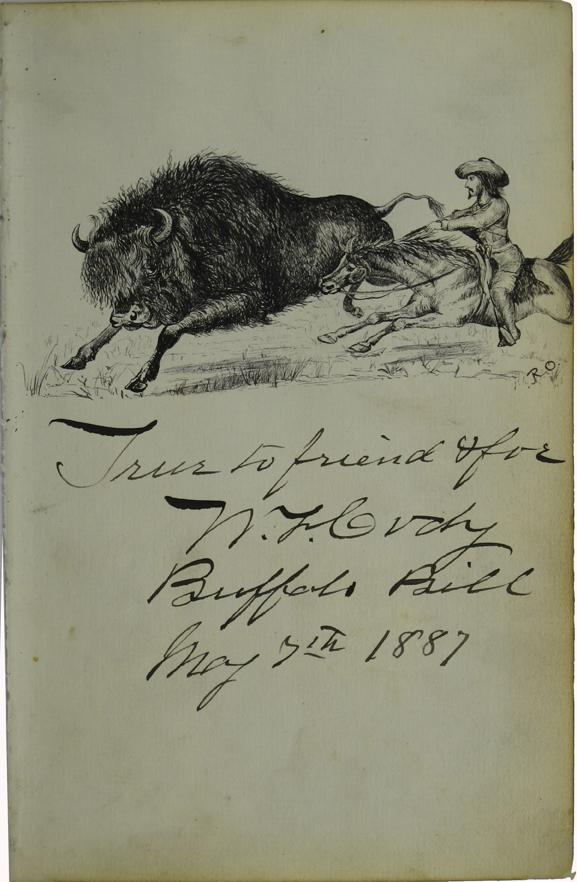 R.O
True to friend & foe
W. F. Cody
Buffalo Bill
May 7th 1887